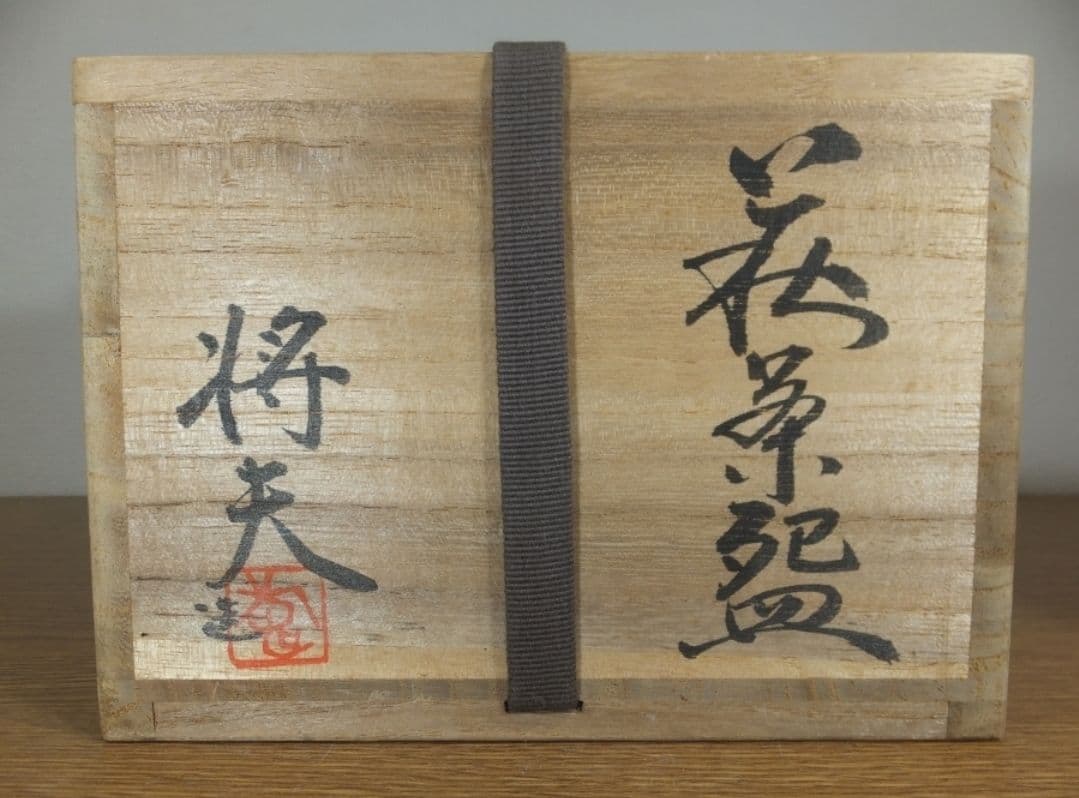 萩茶盌
将夫
造